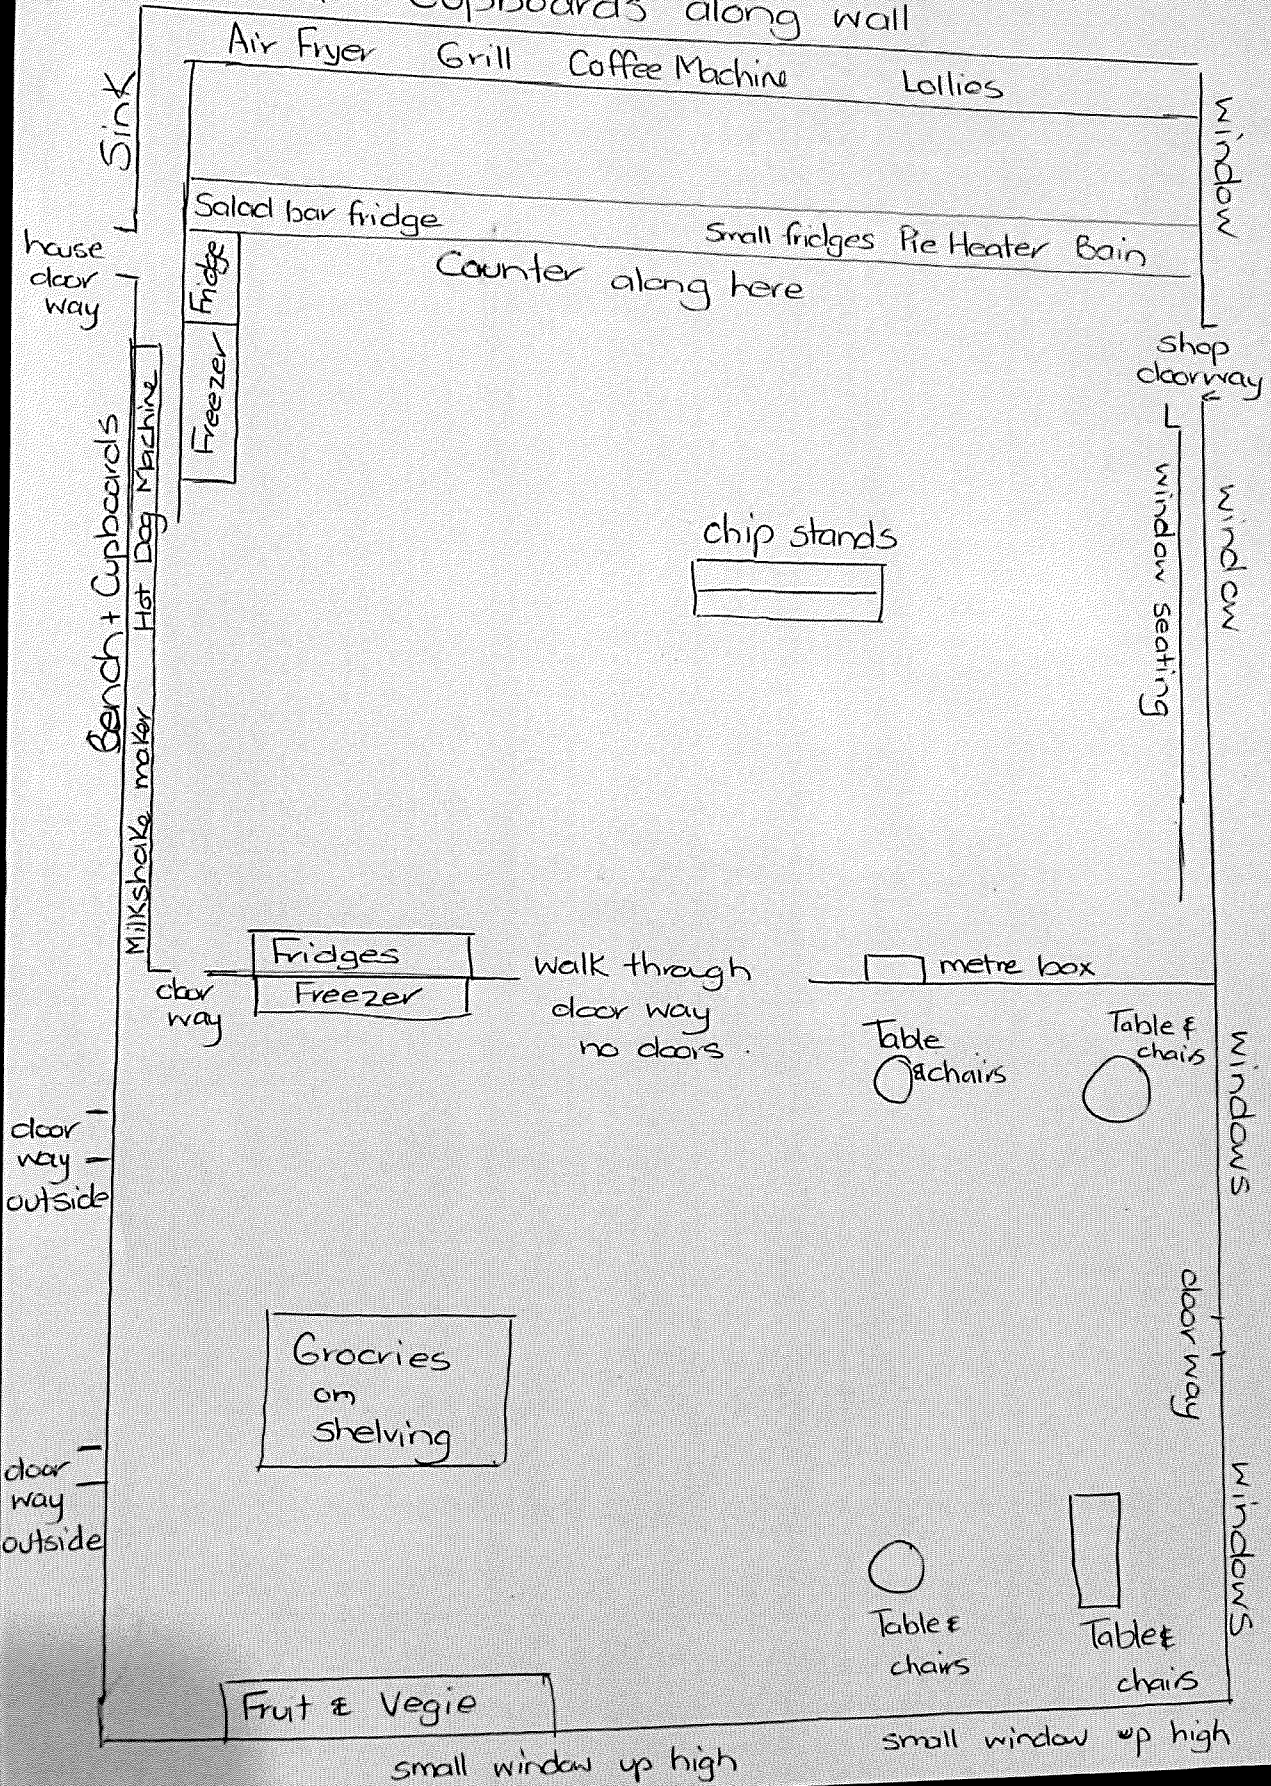 Cupboards along wall
Air Fryer Grill Coffee Machine Lollies
Sink
window
Salad bar fridge
Small fridges Pie Heater Bain
Counter along here
house
door
way
Fridge
Freezer
shop
doorway
Bench + Cupboards
Hot Dog Machine
Milkshake maker
window seating
window
chip stands
Fridges
Freezer
door
way
walk through
door way
no doors.
metre box
Table
& chairs
Table &
chairs
windows
door
way
outside
doorway
Grocries
on
shelving
door
way
outside
windows
Table &
chairs
Table &
chairs
Fruit & Vegie
small window up high
small window up high